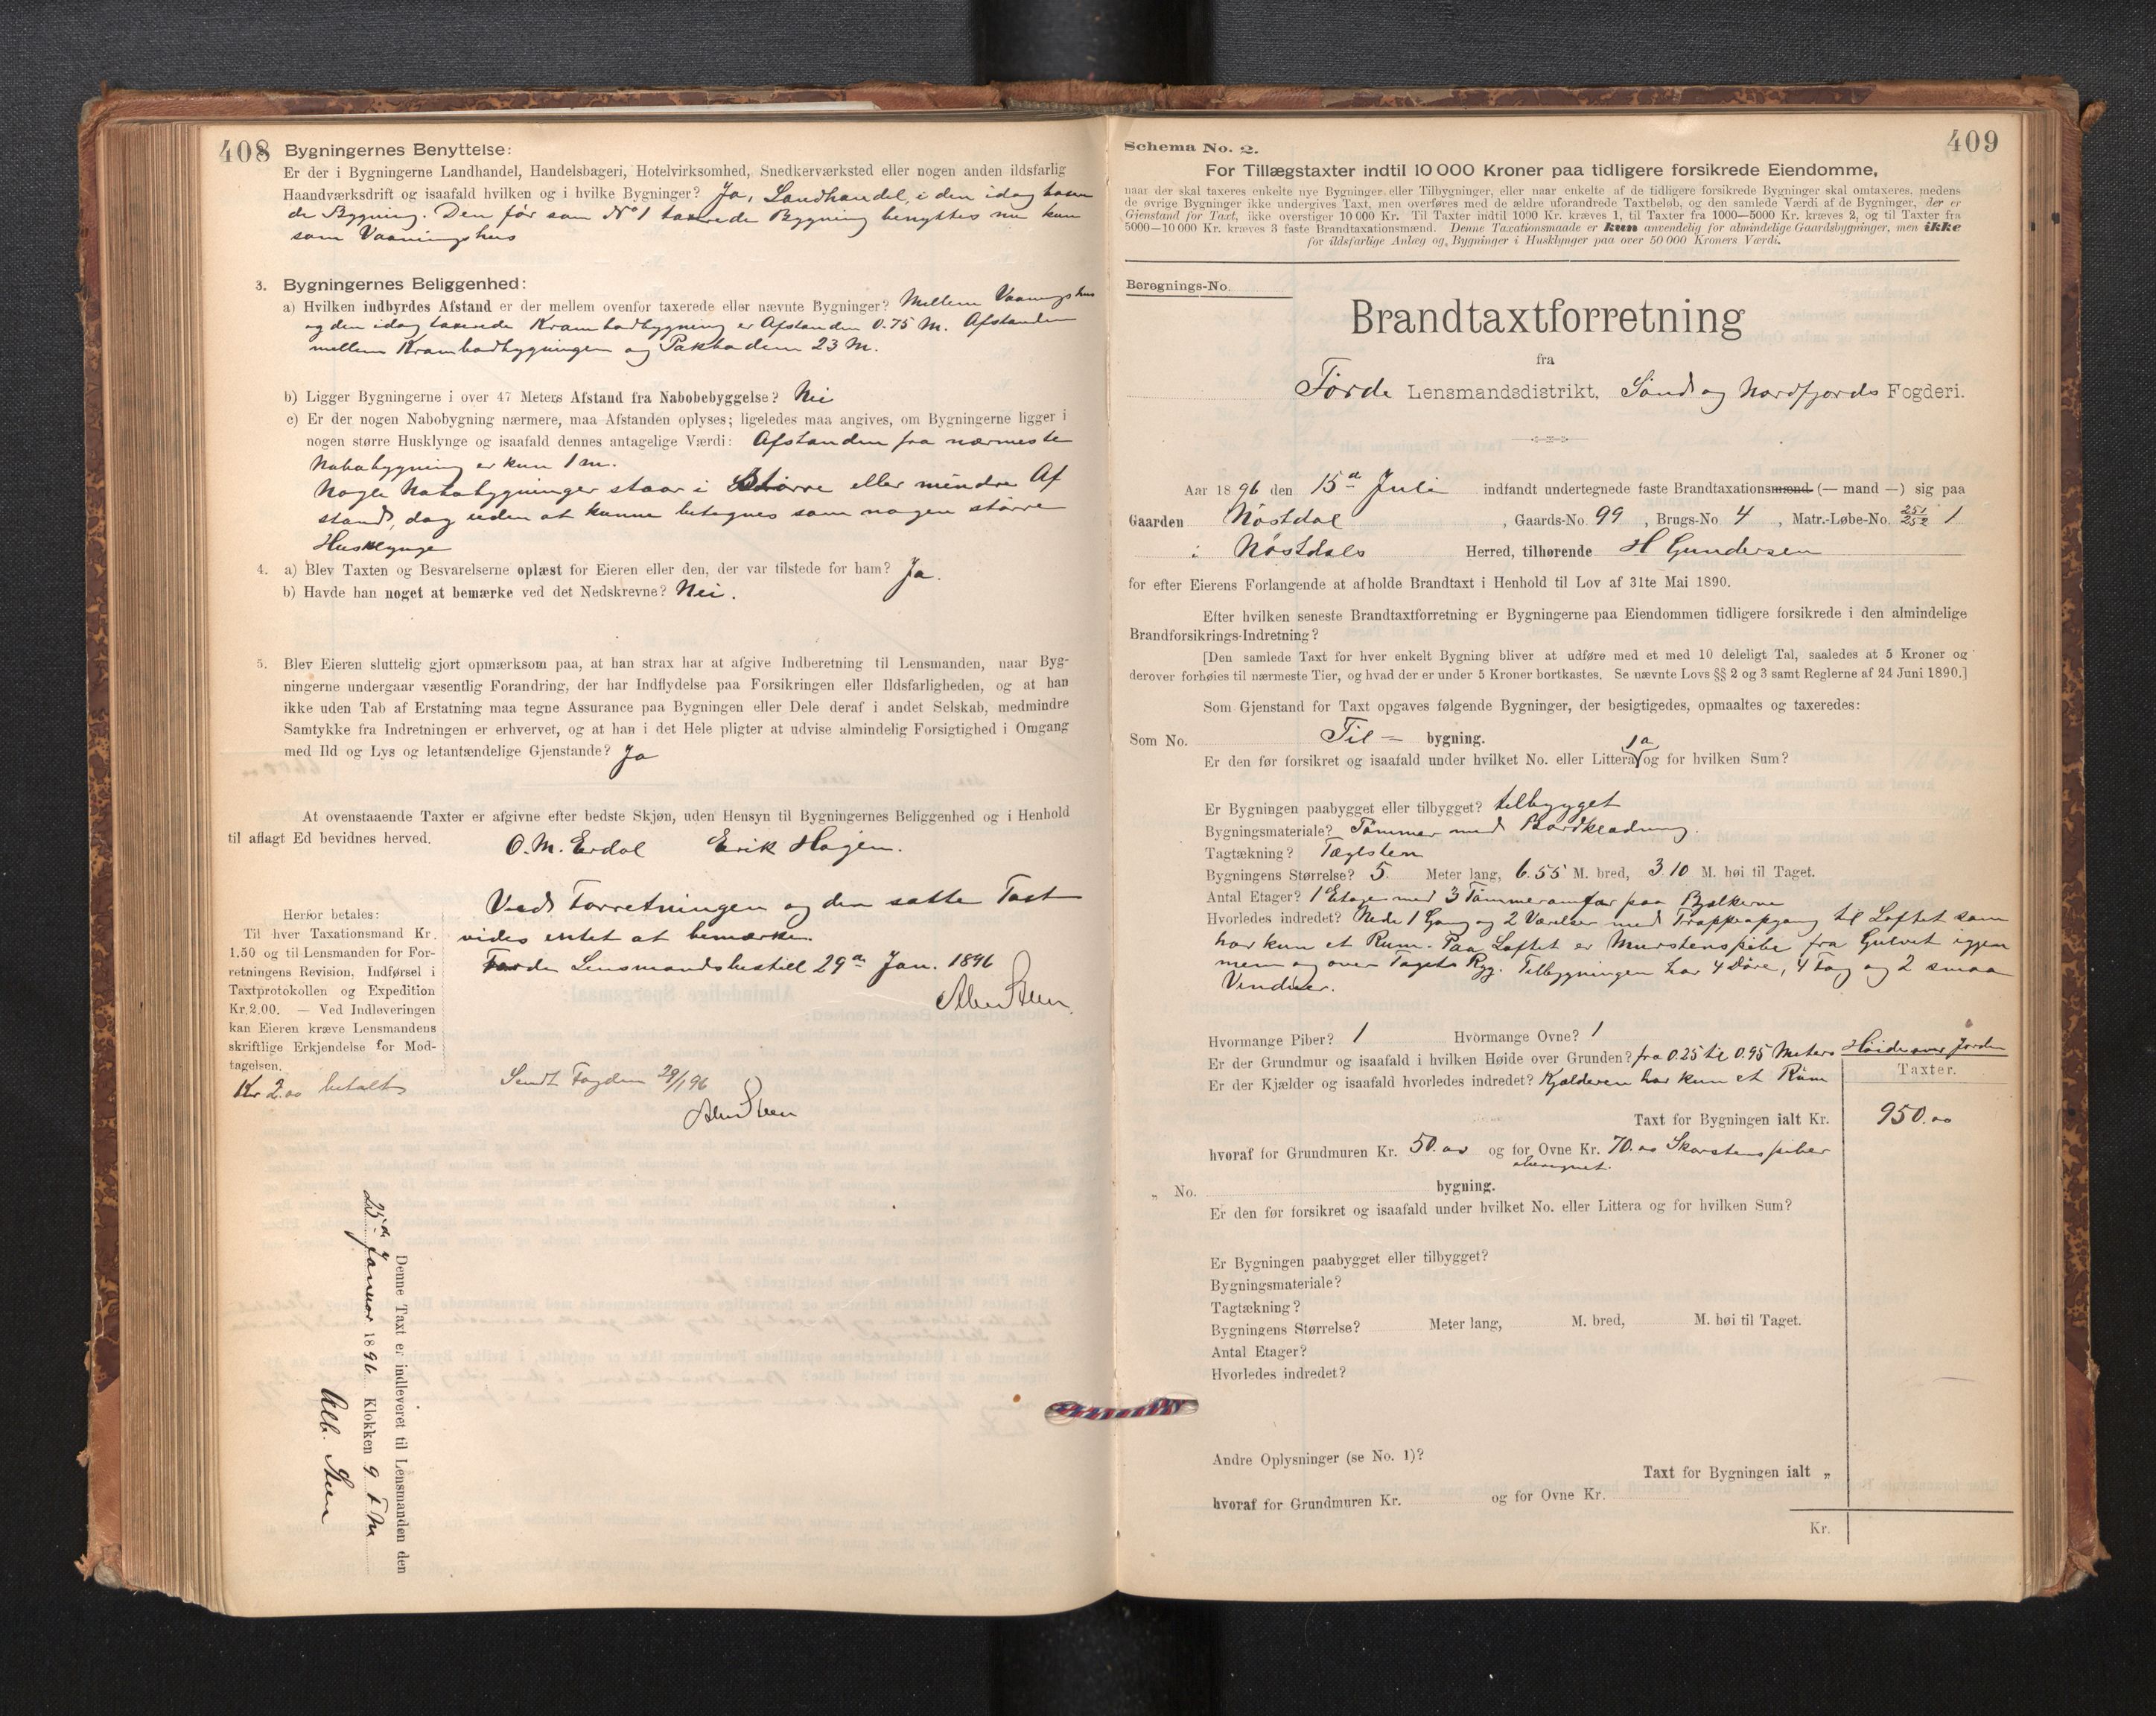 408
Bygningernes Benyttelse:
Er der i Bygningerne Landhandel, Handelsbageri, Hotelvirksomhed, Snedkerværksted eller nogen anden ildsfarlig
Haandværksdrift og isaafald hvilken og i hvilke Bygninger? Ja, Landhandel, i den idag taxere
de Bygning. Den før som No 1 taxerede Bygning benyttes nu kun
som Vaaningshus
3. Bygningernes Beliggenhed:
a) Hvilken indbyrdes Afstand er der mellem ovenfor taxerede eller nævnte Bygninger? Mellem Vaaningshus
og den idag taxerede Krambodbygning er Afstanden 0.75 M. Afstanden
mellem Krambodbygningen og Pakboden 23 M.
b) Ligger Bygningerne i over 47 Meters Afstand fra Nabobebyggelse? Nei
c) Er der nogen Nabobygning nærmere, maa Afstanden oplyses; ligeledes maa angives, om Bygningerne ligger i
nogen større Husklynge og isaafald dennes antagelige Værdi: Afstanden fra nærmeste
Nabobygning er kun 1 m.
Nogle Nabobygninger staar i større eller mindre Af
stand, dog uden at kunne betegnes som nogen større
Husklynge
4. a) Blev Taxten og Besvarelserne oplæst for Eieren eller den, der var tilstede for ham? Ja.
b) Havde han noget at bemærke ved det Nedskrevne? Nei.
5. Blev Eieren sluttelig gjort opmærksom paa, at han strax har at afgive Indberetning til Lensmanden, naar Byg-
ningerne undergaar væsentlig Forandring, der har Indflydelse paa Forsikringen eller Ildsfarligheden, og at han
ikke uden Tab af Erstatning maa tegne Assurance paa Bygningen eller Dele deraf i andet Selskab, medmindre
Samtykke fra Indretningen er erhvervet, og at han i det Hele pligter at udvise almindelig Forsigtighed i Omgang
med Ild og Lys og letantændelige Gjenstande? Ja
At ovenstaaende Taxter er afgivne efter bedste Skjøn, uden Hensyn til Bygningernes Beliggenhed og i Henhold
til aflagt Ed bevidnes herved.
O. M. Erdal Erik Hagen.
Ved Forretningen og den satte Taxt
vides intet at bemærke.
Førde Lensmandsbestill 29de Jan. 1896
Alb Steen
Herfor betales:
Til hver Taxationsmand Kr.
1.50 og til Lensmanden for For-
retningens Revision, Indførsel i
Taxtprotokollen og Expedition
Kr. 2.00. — Ved Indleveringen
kan Eieren kræve Lensmandens
skriftlige Erkjendelse for Mod-
tagelsen.
Kr 2.00 betalt
Sendt Fogden 29/1 96
Alb Steen
Denne Taxt er indleveret til Lensmanden den
25de Januar 1896 Klokken 9 F M
Alb. Steen
409
Schema No. 2.
For Tillægstaxter indtil 10 000 Kroner paa tidligere forsikrede Eiendomme,
naar der skal taxeres enkelte nye Bygninger eller Tilbygninger, eller naar enkelte af de tidligere forsikrede Bygninger skal omtaxeres, medens
de øvrige Bygninger ikke undergives Taxt, men overføres med de ældre uforandrede Taxtbeløb, og den samlede Værdi af de Bygninger, der er
Gjenstand for Taxt, ikke overstiger 10 000 Kr. Til Taxter indtil 1000 Kr. kræves 1, til Taxter fra 1000—5000 Kr. kræves 2, og til Taxter fra
5000—10 000 Kr. kræves 3 faste Brandtaxationsmænd. Denne Taxationsmaade er kun anvendelig for almindelige Gaardsbygninger, men ikke
for ildsfarlige Anlæg og Bygninger i Husklynger paa over 50 000 Kroners Værdi.
Beregnings-No.
Brandtaxtforretning
fra
Førde Lensmandsdistrikt, Sønd og Nordfjords Fogderi.
Aar 1896 den 15de Juli indfandt undertegnede faste Brandtaxationsmænd (— mand —) sig paa
Gaarden Nøstdal, Gaards-No. 99, Brugs-No. 4, Matr.-Løbe-No. 251/252 1
i Nøstdals Herred, tilhørende H Gundersen
for efter Eierens Forlangende at afholde Brandtaxt i Henhold til Lov af 31te Mai 1890.
Efter hvilken seneste Brandtaxtforretning er Bygningerne paa Eiendommen tidligere forsikrede i den almindelige
Brandforsikrings-Indretning?
[Den samlede Taxt for hver enkelt Bygning bliver at udføre med et med 10 deleligt Tal, saaledes at 5 Kroner og
derover forhøies til nærmeste Tier, og hvad der er under 5 Kroner bortkastes. Se nævnte Lovs §§ 2 og 3 samt Reglerne af 24 Juni 1890.]
Som Gjenstand for Taxt opgaves følgende Bygninger, der besigtigedes, opmaaltes og taxeredes:
Som No. Til = bygning.
1a
Er den før forsikret og isaafald under hvilket No. eller Littera og for hvilken Sum?
Er Bygningen paabygget eller tilbygget? tilbygget
Bygningsmateriale? Tømmer med Bordklædning.
Tagtækning? Tæglsten
Bygningens Størrelse? 5. Meter lang, 6.55 M. bred, 3.10 M. høi til Taget.
Antal Etager? 1 Etage med 3 Tømmeromfar paa Bjelkerne
Hvorledes indredet? Nede 1 Gang og 2 Værelser med Trappeopgang til Loftet som
har kun et Rum. Paa Loftet er Murstenspibe fra Gulvet igjen
nem og over Tagets Ryg. Tilbygningen har 4 Døre, 4 Fag og 2 smaa
Vinduer.
Hvormange Piber? 1 Hvormange Ovne? 1
Er der Grundmur og isaafald i hvilken Høide over Grunden? fra 0.25 til 0.95 Meters Høide over Jorden
Er der Kjælder og isaafald hvorledes indredet? Kjælderen har kun et Rum
Taxter.
Taxt for Bygningen ialt Kr. 950.00
hvoraf for Grundmuren Kr. 50.00 og for Ovne Kr. 70.00 Skorstenspiber
„ No. bygning.
Er den før forsikret og isaafald under hvilket No. eller Littera og for hvilken Sum?
Er Bygningen paabygget eller tilbygget?
Bygningsmateriale?
Tagtækning?
Bygningens Størrelse? Meter lang, M. bred, M. høi til Taget.
Antal Etager?
Hvorledes indredet?
Andre Oplysninger (se No. 1)?
Taxt for Bygningen ialt „
hvoraf for Grundmuren Kr. og for Ovne Kr.
Kr.